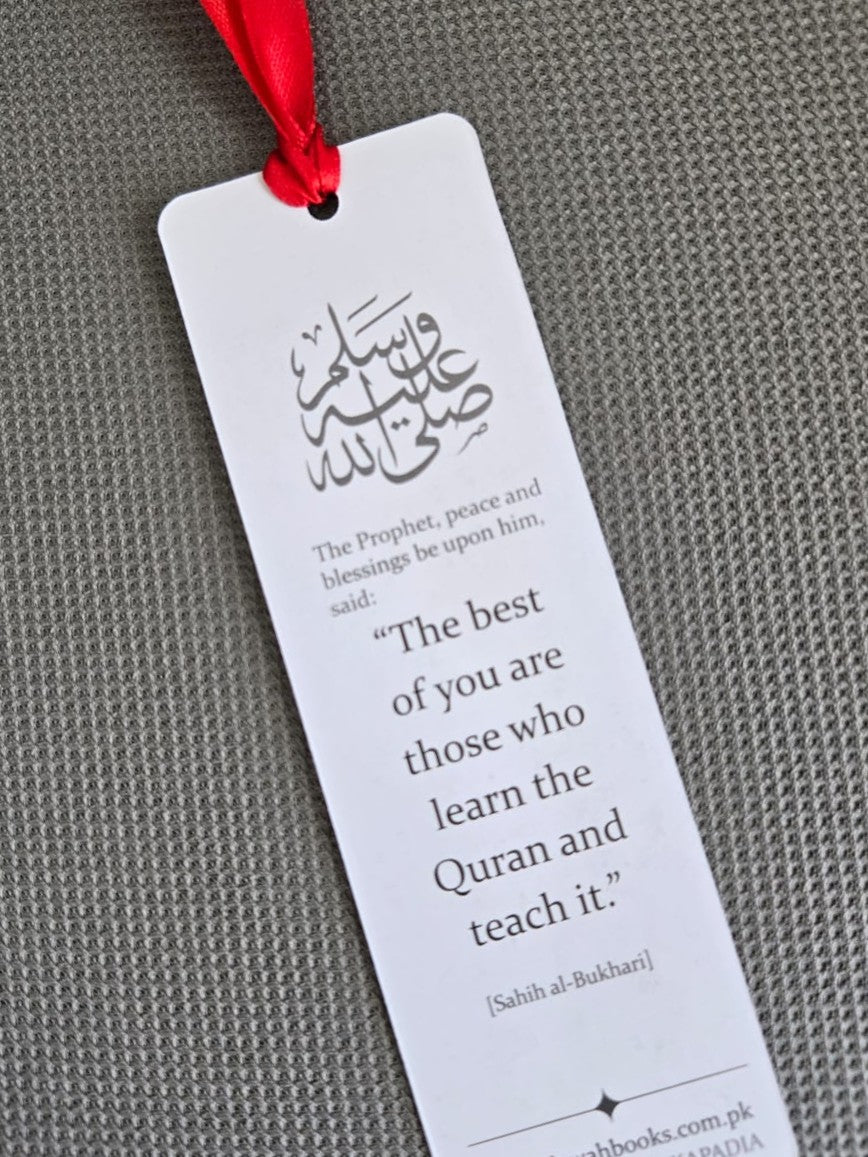 صلى الله
عليه
وسلم
The Prophet, peace and
blessings be upon him,
said:
“The best
of you are
those who
learn the
Quran and
teach it.”
[Sahih al-Bukhari]